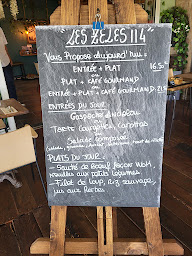 "LES ZÈLES 114"
Vous Propose aujourd'hui :
ENTRÉE + PLAT
ou
PLAT + CAFÉ GOURMAND
16.50
ou
ENTRÉE + PLAT + CAFÉ GOURMAND
ENTRÉES DU JOUR
Gaspacho Andalou
ou
Tarte Courgettes, Carottes
ou
Salade Composée
PLATS DU JOUR :
- Sauté de Boeuf façon
nouilles aux petits légumes
- Filet de loup, riz sauvage,
jus aux herbes